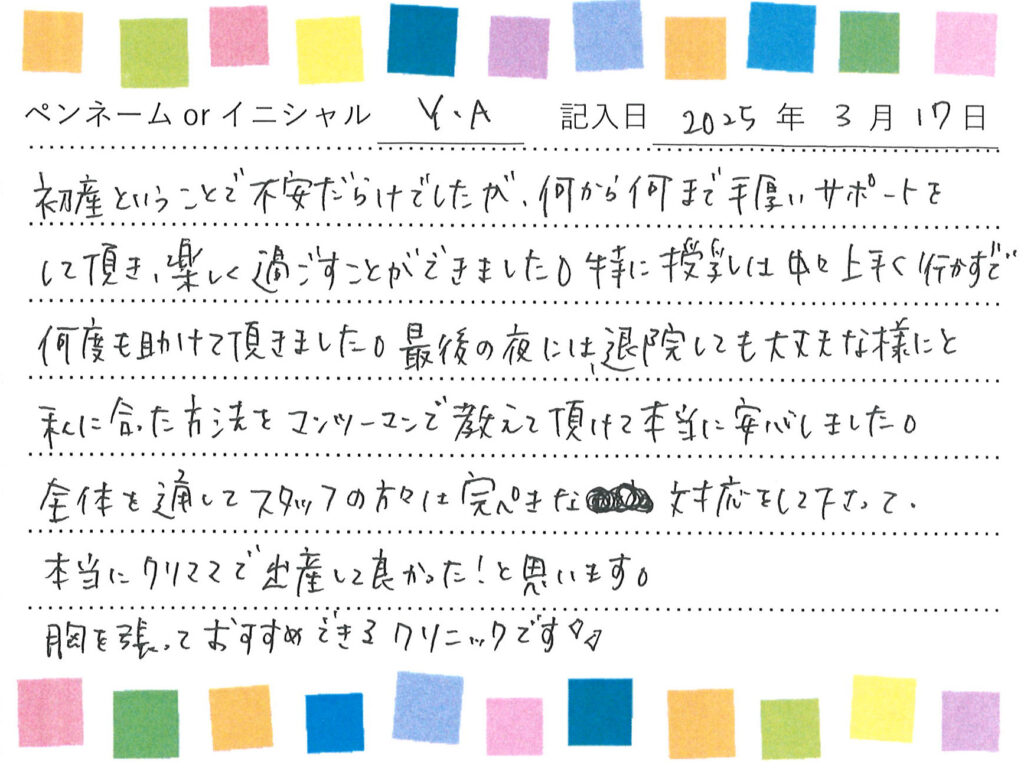 ペンネーム or イニシャル Y.A 記入日 2025年3月17日
初産ということで不安だらけでしたが、何から何まで手厚いサポートを
して頂き、楽しく過ごすことができました。特に授乳は中々上手く行かずで
何度も助けて頂きました。最後の夜には、退院しても大丈夫な様にと
私に合った方法をマンツーマンで教えて頂けて本当に安心しました。
全体を通してスタッフの方々は完ぺきな 対応をして下さって、
本当にクリママで出産して良かった!と思います。
胸を張っておすすめできるクリニックです